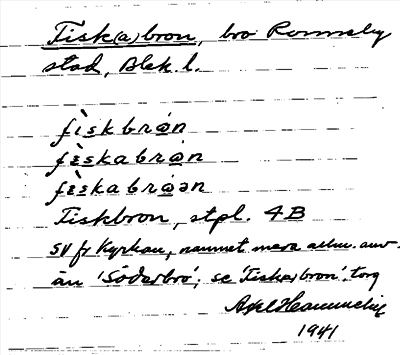 Fisk(a)bron, bro Ronneby
stad, Blek. l.
fìskbrọn
fɛ̀skabrọn
fɛ̀skabrọən
Fiskbron, stpl. 4B
SV fr kyrkan, namnet mera allm. anv.
än 'Söderbro'; se 'Fiskabron', torg
Axel
1941